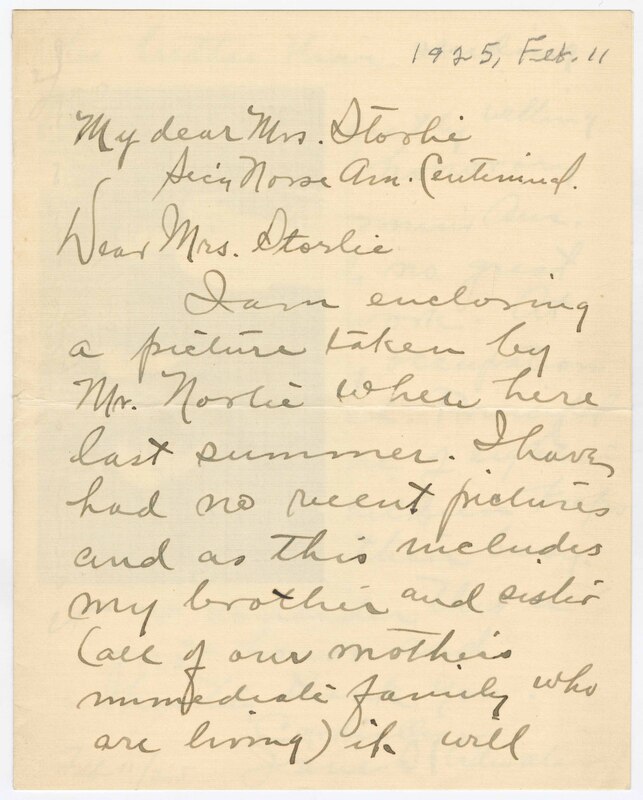 1925, Feb. 11
My dear Mrs. Storlie
Secy Norse Am. Centinnial.
Dear Mrs. Storlie
I am enclosing
a picture taken by
Mr. Norlie when here
last summer. I have
had no recent pictures
and as this includes
my brother and sister
(all of our mothers
immediate family who
are living) it will